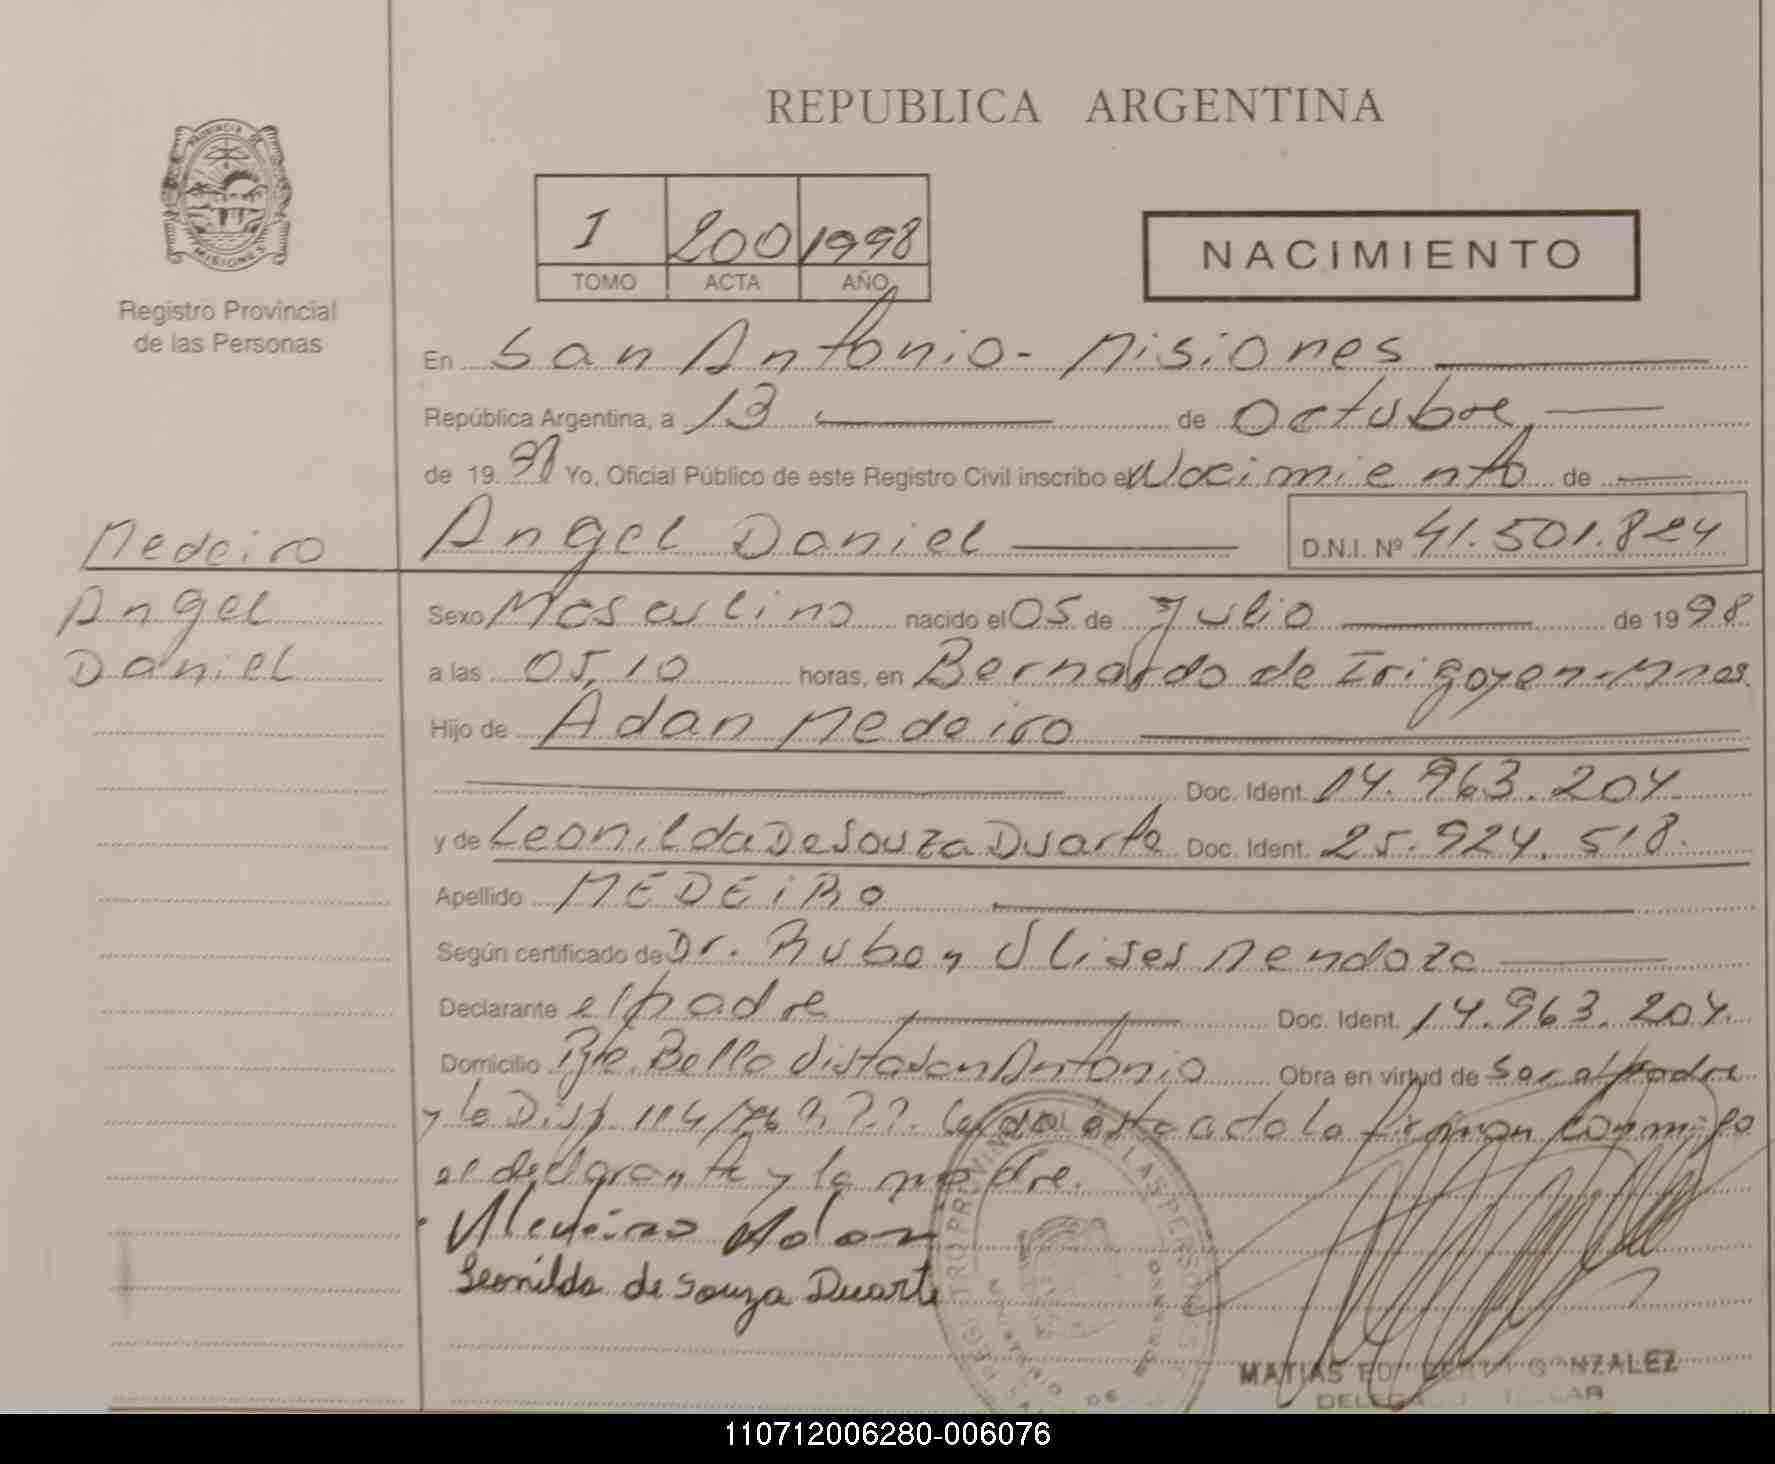 REPUBLICA ARGENTINA
PROVINCIA DE
MISIONES
Registro Provincial
de las Personas
I 200 1998
TOMO ACTA AÑO
NACIMIENTO
En San Antonio - Misiones
República Argentina, a 13 de Octubre
de 19 98 Yo, Oficial Público de este Registro Civil inscribo el Nacimiento de
Medeiro
Angel
Daniel
Angel Daniel D.N.I. Nº 41.501.824
Sexo Masculino nacido el 05 de Julio de 19 98
a las 05,10 horas, en Bernardo de Irigoyen - Mnes.
Hijo de Adan Medeiro
Doc. Ident. 14.963.204
y de Leonilda De Souza Duarte Doc. Ident. 25.924.518.
Apellido MEDEiRo
Según certificado de Dr. Ruben Ulises Mendoza
Declarante el padre Doc. Ident. 14.963.204.
Domicilio Pje. Bella Vista San Antonio Obra en virtud de Ser el padre
y la Disp. 114/ Leida esta acta la firman conmigo
el declarante y la madre.
Medeiro Adan
Leonilda de Souza Duarte
MATIAS GONZALEZ
110712006280-006076